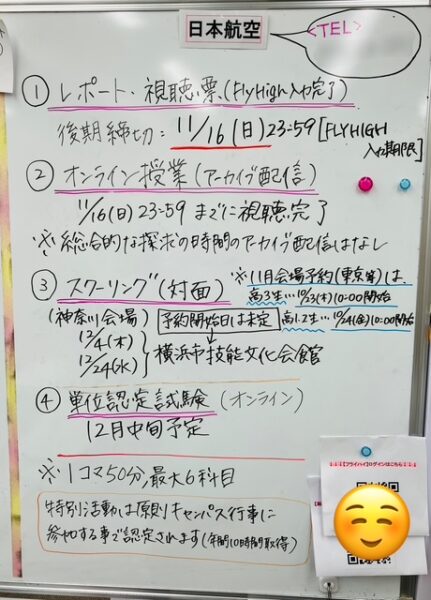 日本航空
<TEL>
① レポート・視聴票(FlyHigh入力完了)
後期締切: 11/16(日)23:59[FLYHIGH
入力期限]
② オンライン授業(アーカイブ配信)
11/16(日)23:59までに視聴完了
※総合的な探求の時間のアーカイブ配信はなし
③ スクーリング(対面)
※11月会場予約(東京等)は、
高3生…10/23(木)10:00開始
高1.2生…10/24(金)10:00開始
(神奈川会場)
予約開始日は未定
12/4(木)
12/24(水)
横浜市技能文化会館
④ 単位認定試験(オンライン)
12月中旬予定
※1コマ50分,最大6科目
特別活動は原則キャンパス行事に
参加する事で認定されます(年間10時間取得)
【フライハイ】ログインはこちら